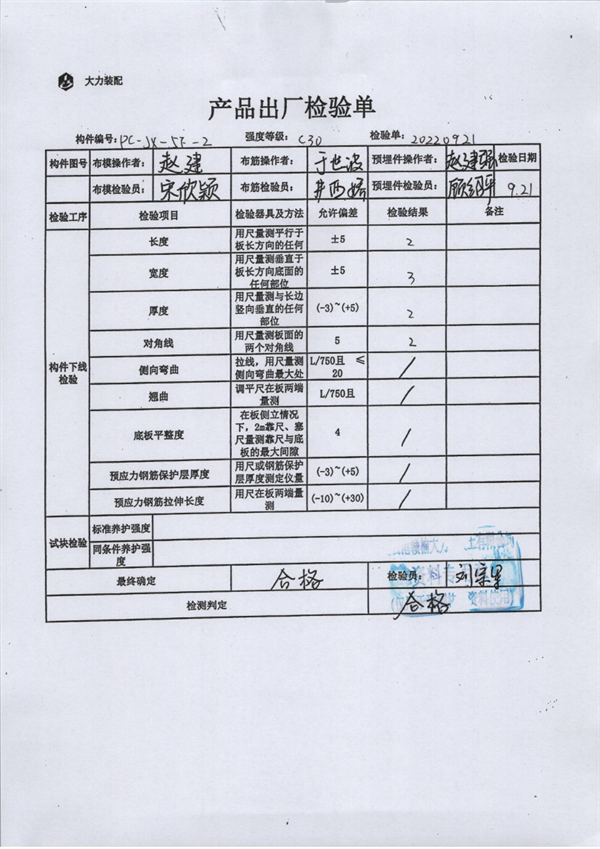 大力装配
产品出厂检验单
构件编号: PC-JX-5F-2 强度等级: C30 检验单: 20220921
构件图号 布模操作者: 赵建 布筋操作者: 于世波 预埋件操作者: 赵建强 检验日期
布模检验员: 宋欣颖 布筋检验员: 预埋件检验员: 9.21
检验工序 检验项目 检验器具及方法 允许偏差 检验结果 备注
构件下线检验
长度 用尺量测平行于板长方向的任何 ±5 2
宽度 用尺量测垂直于板长方向底面的任何部位 ±5 3
厚度 用尺量测与长边竖向垂直的任何部位 (-3)~(+5) 2
对角线 用尺量测板面的两个对角线 5 2
侧向弯曲 拉线,用尺量测侧向弯曲最大处 L/750且 ≤20 /
翘曲 调平尺在板两端量测 L/750且 /
底板平整度 在板侧立情况下,2m靠尺、塞尺量测靠尺与底板的最大间隙 4 /
预应力钢筋保护层厚度 用尺或钢筋保护层厚度测定仪量 (-3)~(+5) /
预应力钢筋拉伸长度 用尺在板两端量测 (-10)~(+30) /
试块检验 标准养护强度
同条件养护强度
最终确定 合格 检验员: 刘宗军
检测判定 合格